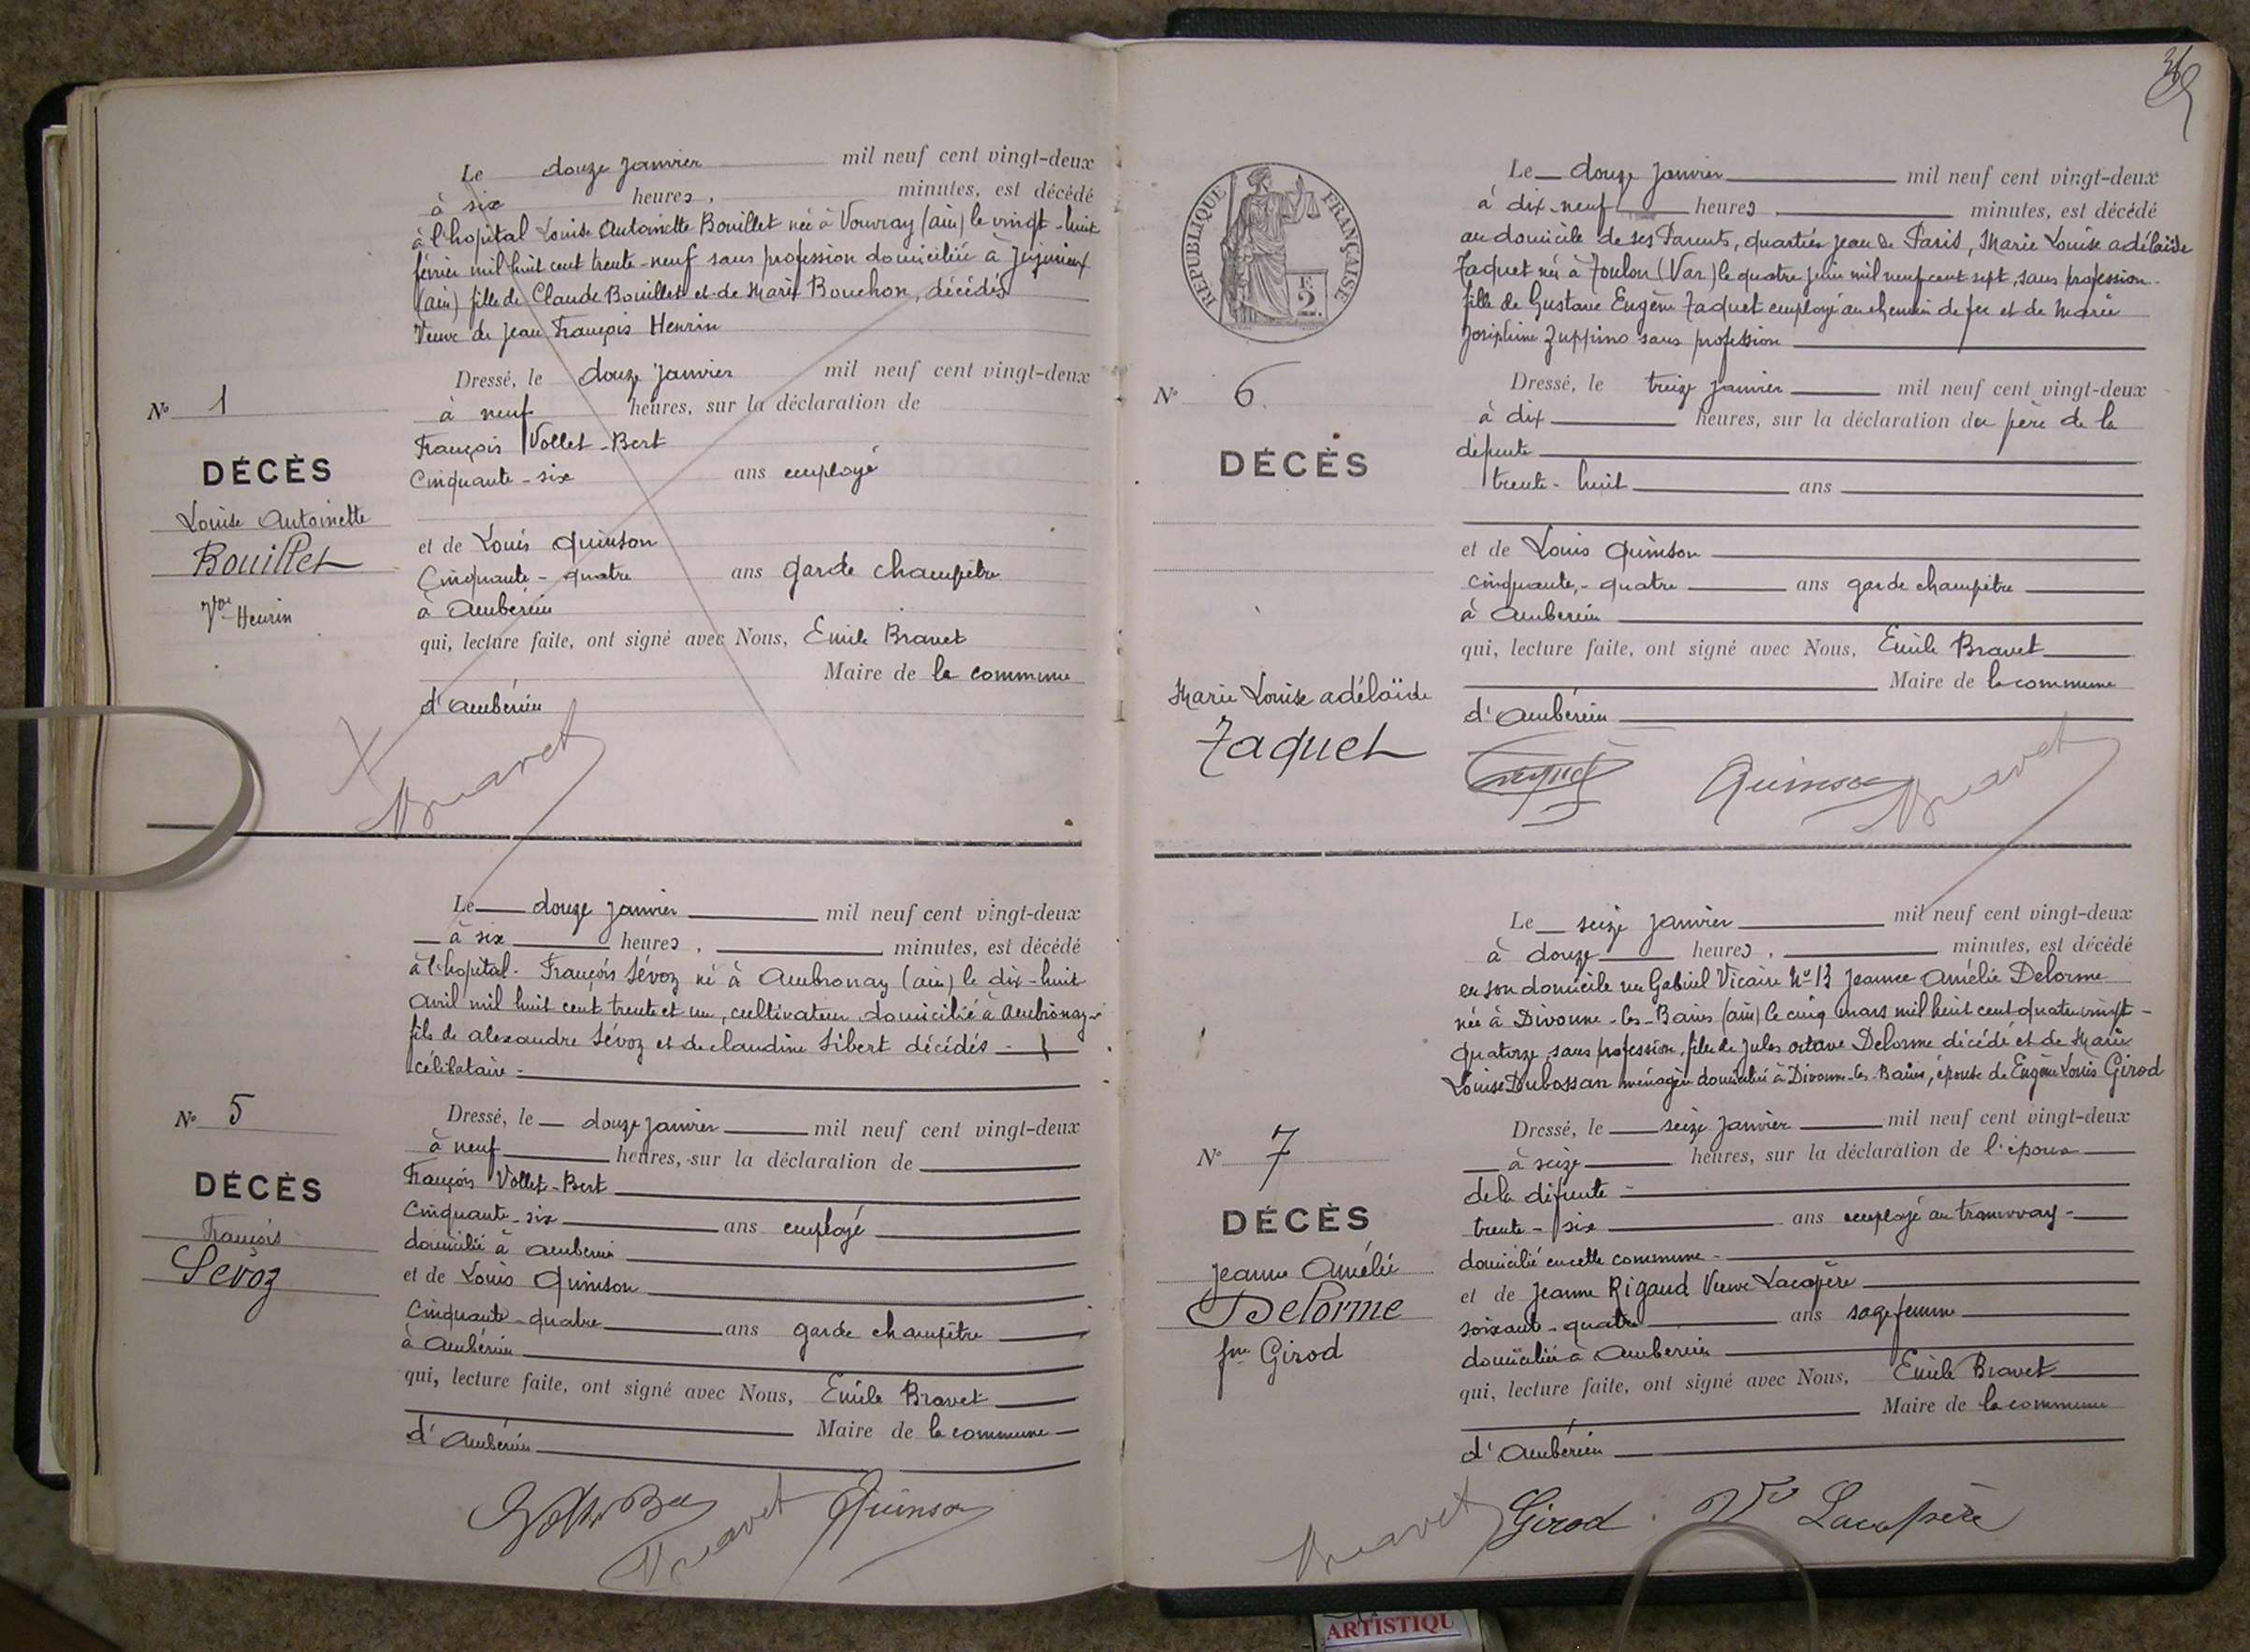 Le douze janvier mil neuf cent vingt-deux
à six heures, minutes, est décédé
à l'hopital Louise Antoinette Bouillet née à Vouvray (ain) le vingt-huit
février mil huit cent trente-neuf sans profession domiciliée à Jujurieux
(ain) fille de Claude Bouillet et de Marie Bouchon, décédés
Veuve de Jean François Henrin
Dressé, le douze janvier mil neuf cent vingt-deux
N° 1
à neuf heures, sur la déclaration de
François Vollet-Bert
DÉCÈS
Cinquante-six ans employé
Louise Antoinette
Bouillet
et de Louis Quinson
Cinquante-quatre ans garde champêtre
Vve Henrin
à Ambérieu
qui, lecture faite, ont signé avec Nous, Emile Bravet
Maire de la commune
d'Ambérieu
Bravet
Le douze janvier mil neuf cent vingt-deux
à six heures, minutes, est décédé
à l'hopital. François Sévoz né à Ambronay (ain) le dix-huit
avril mil huit cent trente et un, cultivateur domicilié à Ambronay
fils de alexandre Sévoz et de claudine Sibert décédés
célibataire
N° 5
Dressé, le douze janvier mil neuf cent vingt-deux
à neuf heures, sur la déclaration de
François Vollet-Bert
DÉCÈS
Cinquante-six ans employé
François
Sévoz
domicilié à Amberieu
et de Louis Quinson
Cinquante-quatre ans garde champêtre
à Ambérieu
qui, lecture faite, ont signé avec Nous, Emile Bravet
Maire de la commune
d'Ambérieu
Bravet Quinson
RÉPUBLIQUE FRANÇAISE
F.
2.
Le douze janvier mil neuf cent vingt-deux
à dix-neuf heures, minutes, est décédé
au domicile de ses Parents, quartier jean de Paris, Marie Louise adélaïde
Jaquet née à Toulon (Var) le quatre juin mil neuf cent sept, sans profession
fille de Gustave Eugène Jaquet employé au chemin de fer et de Marie
Joséphine Zuppino sans profession
Dressé, le treize janvier mil neuf cent vingt-deux
N° 6
à dix heures, sur la déclaration du père de la
défunte
DÉCÈS
trente-huit ans
et de Louis Quinson
cinquante-quatre ans garde champêtre
à Ambérieu
qui, lecture faite, ont signé avec Nous, Emile Bravet
Maire de la commune
Marie Louise adélaïde
Jaquet
d'Ambérieu
Jaquet Quinson Bravet
Le seize janvier mil neuf cent vingt-deux
à douze heures, minutes, est décédé
en son domicile rue Gabriel Vicaire N° 13 Jeanne Amélie Delorme
née à Divonne-les-Bains (ain) le cinq mars mil huit cent quatre vingt-
quatorze sans profession, fille de Jules octave Delorme décédé et de Marie
Louise Dubossan ménagère domiciliée à Divonne-les-Bains, épouse de Eugène Louis Girod
Dressé, le seize janvier mil neuf cent vingt-deux
N° 7
à seize heures, sur la déclaration de l'époux
de la défunte
DÉCÈS
trente-six ans employé au tramway
Jeanne Amélie
Delorme
fme Girod
domicilié en cette commune
et de Jeanne Rigaud Veuve Lacapère
soixante-quatre ans sage femme
domiciliée à Amberieu
qui, lecture faite, ont signé avec Nous, Emile Bravet
Maire de la commune
d'Ambérieu
Bravet Girod Vve Lacapère
ARTISTIQU